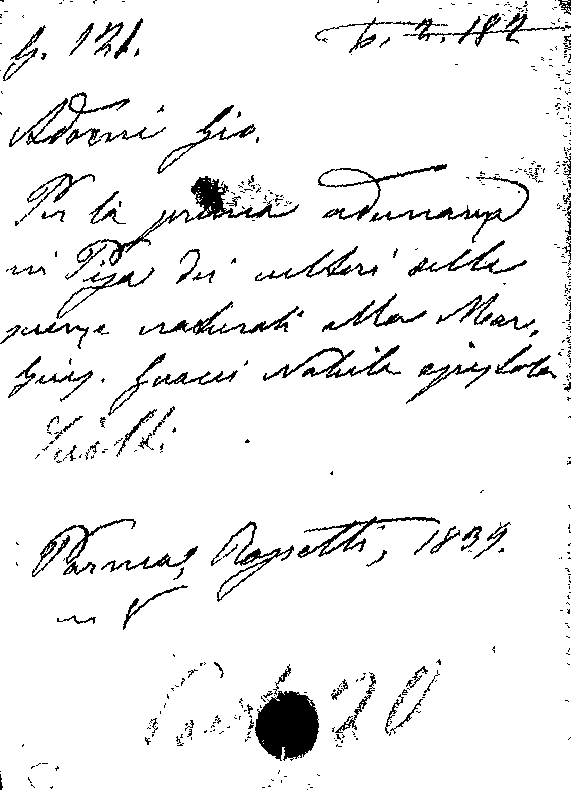 G. 121.
b. 2. 182
Adorni Gio.
Per la prima adunanza
in Pisa dei cultori delle
scienze naturali alla Mar.
Gius. Guacci Nobile epistola
Parma, Rossetti, 1839.
in 8
20